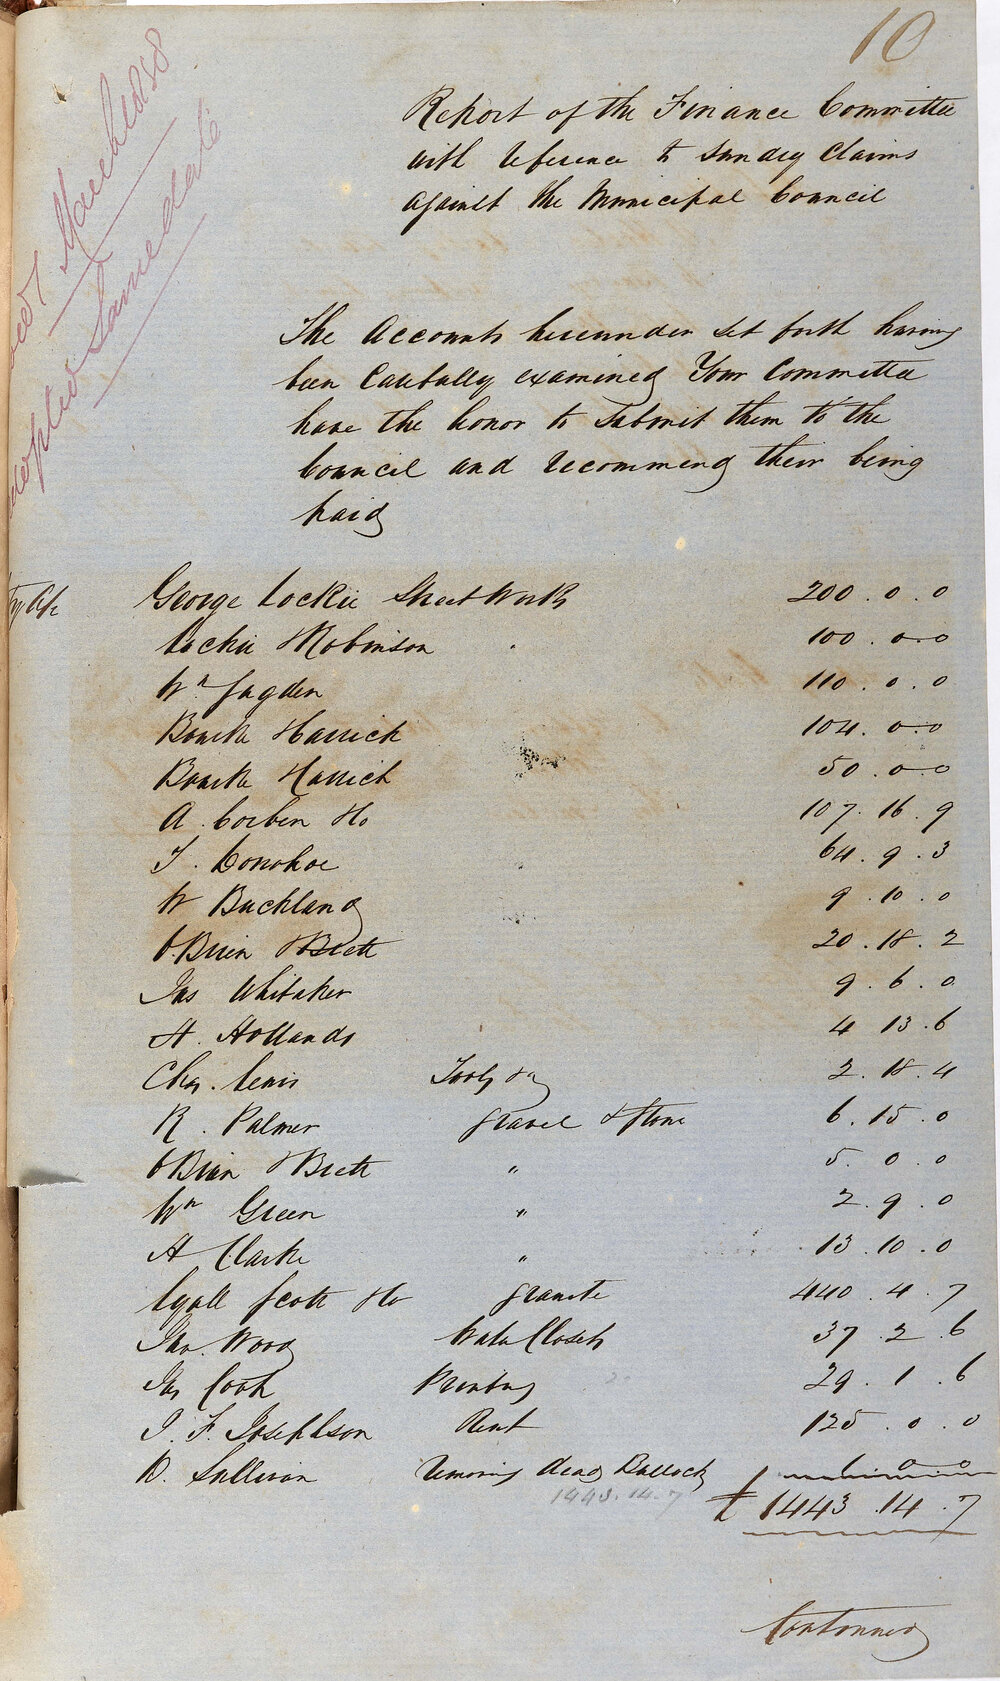 10
March 1858
adopted Same date
Report of the Finance Committee
with reference to Sundry Claims
against the Municipal Council
The Accounts hereunder set forth having
been Carefully examined Your Committee
have the honor to submit them to the
Council and recommend their being
paid
George Lockie Street Work 200 . 0 . 0
Lockie & Robinson 100 . 0 . 0
Wm 110 . 0 . 0
Bourke & Harrick 104 . 0 . 0
Bourke Harrick 50 . 0 . 0
A. Corben & Co 107 . 16 . 9
T. Donohoe 64 . 9 . 3
W Buckland 9 . 10 . 0
O.Brien & Brett 20 . 18 . 2
Jas Whitaker 9 . 6 . 0
H. Hollands 4 13 . 6
Chas. Lewis Tools &c 2 . 18 . 4
R. Palmer gravel & stone 6 . 15 . 0
OBrien & Brett " 5 . 0 . 0
Wm Green " 2 . 9 . 0
H Clarke " 13 . 10 . 0
Lyall Scott & Co granite 440 . 4 . 7
Jno. Wood Water Closets 37 . 2 . 6
Jas Cook Printing 29 . 1 . 6
J. F. Josephson Rent 125 . 0 . 0
D. Sullivan removing dead Bullock 1 0 0
1443.14.7
£ 1443 . 14 . 7
Continued